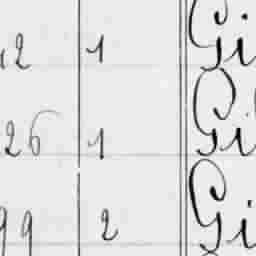 12 1 Gi
26 1 Gi
99 2 Gi